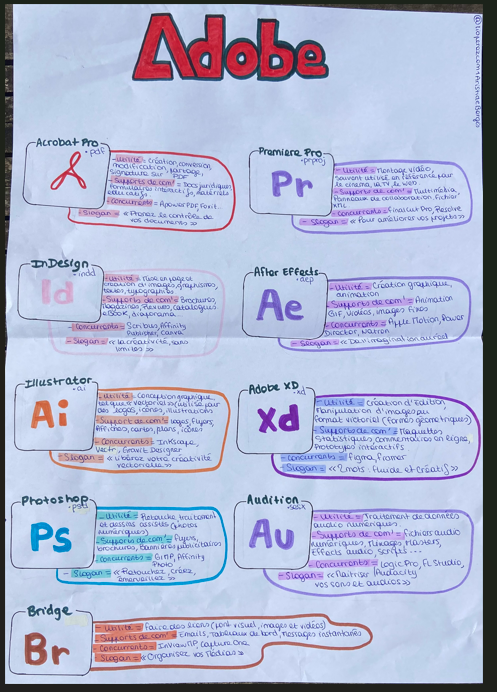 Adobe
Acrobat Pro
.pdf
- Utilité = Création, conversion,
modification, partage,
signature sur PDF
- Supports de com' = Docs juridiques,
formulaires interactifs, matériels
éducatifs
- Concurrents = ApowerPDF, Foxit...
- Slogan = « Prenez le contrôle de
vos documents »
Premiere Pro
.prproj
Pr
- Utilité = Montage vidéo,
souvent utilisé en référence pour
le cinéma, la TV, le web
- Supports de com' = Multimédia,
Panneaux de collaboration, Fichier
XML
- Concurrents = Final Cut Pro, Resolve
- Slogan = « Pour améliorer vos projets »
InDesign
.indd
Id
- Utilité = Mise en page et
création d'images, graphismes,
textes, typographies
- Supports de com' = Brochures,
magazines, Revues, catalogues
eBook, diaporama
- Concurrents = Scribus, Affinity
Publisher, Canva
- Slogan = « la créativité, sans
limites »
After Effects
.aep
Ae
- Utilité = Création graphique,
animation
- Supports de com' = Animation
GIF, vidéos, images fixes
- Concurrents = Apple Motion, Power
Director, Natron
- Slogan =
Illustrator
.ai
Ai
- Utilité = Conception graphique,
vectoriel
des logos, icônes, illustrations
- Supports de com' = Logos, Flyers,
Affiches, cartes, plans, icônes
- Concurrents = InkScape,
Vectr, Gravit Designer
- Slogan = « libérez votre créativité
vectorielle »
Adobe XD
.xd
Xd
- Utilité = Création d'Edition,
Manipulation d'images au
format vectoriel (formes géométriques)
- Supports de com' = Maquettes,
Statistiques, commentaires en ligne,
Prototypes interactifs
- Concurrents = Figma, Framer
- Slogan = « 2 mots : Fluide et Créatif »
Photoshop
.psd
Ps
- Utilité = Retouche, traitement
et dessins assistés (photos
numériques)
- Supports de com' = Flyers,
brochures, bannières publicitaires
- Concurrents = GIMP, Affinity
Photo
- Slogan = « Retouchez, Créez,
émerveillez »
Audition
.sesx
Au
- Utilité = Traitement de données
audio numériques
- Supports de com' = Fichiers audio
numériques, Mixages, Masters,
Effets audio, scripts...
- Concurrents = Logic Pro, FL Studio,
- Slogan = « Maîtriser Audacity
vos sons et audios »
Bridge
Br
- Utilité = Faire des liens (pont visuel, images et vidéos)
- Supports de com' = Emails, tableaux de bord, messages instantanés
- Concurrents = InViewMP, Capture One
- Slogan = « Organisez vos Médias »